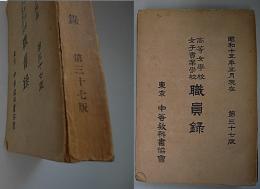 録
第三十七版
職員録
昭和十五年五月現在
第三十七版
高等女學校
女子實業學校
職員録
東京 中等教科書協會